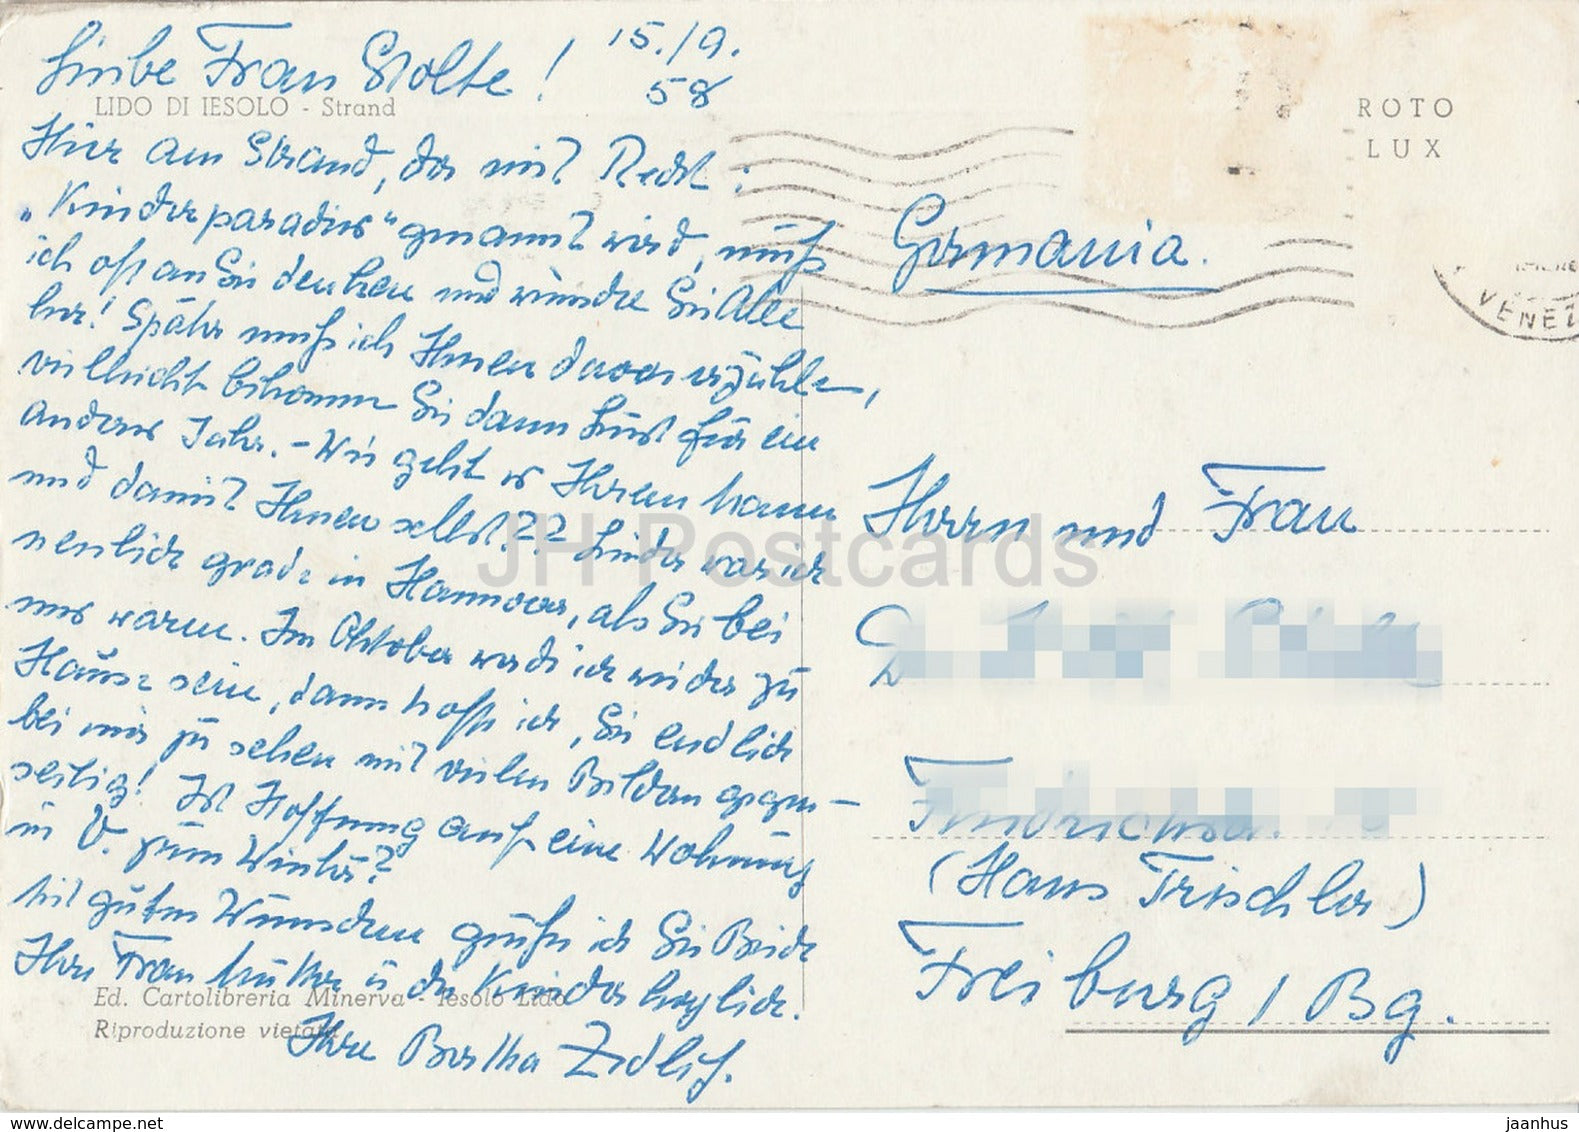 Liebe Frau Stolte! 15./9.
58
LIDO DI IESOLO - Strand
Hier am Strand, der mit Recht:
„Kinderparadies" genannt wird, muß
ich oft an Sie denken und wünsche Sie Alle
her! Später muß ich Ihnen davon erzählen,
vielleicht bekommen Sie dann Lust für ein
anderes Jahr. - Wie geht es Ihrem Mann
und damit Ihnen selbst?? Leider war ich
neulich grade in Hannover, als Sie bei
uns waren. Im Oktober werde ich wieder zu
Hause sein, dann hoffe ich, Sie endlich
bei mir zu sehen mit vielen Bildern gegen-
seitig! Ist Hoffnung auf eine Wohnung
in V. zum Winter?
Mit guten Wünschen grüße ich Sie Beide
Ihre Frau Mutter u die Kinder herzlich.
Ihre Bertha
Ed. Cartolibreria Minerva - Iesolo Lido
Riproduzione vietata
ROTO
LUX
VENEZ
Germania.
Herrn und Frau
(Haus Trischler)
Freiburg / Bg.
JH Postcards
www.delcampe.net
jaanhus